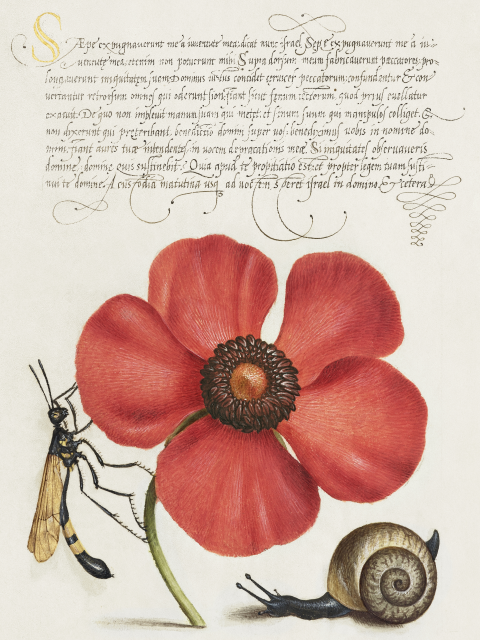 SÆpe expugnauerunt me à iuuentute mea, dicat nunc Israel. Sepe expugnauerunt me a iu-
uentute mea, etenim non potuerunt mihi. Supra dorsum meum fabricauerunt peccatores, pro-
longauerunt iniquitatem suam. Dominus iustus concidet ceruices peccatorum: confundantur & con-
uertantur retrorsum omnes qui oderunt sion, fiant sicut fenum tectorum, quod prius euellatur
exaruit. De quo non impleuit manum suam qui metit, et sinum suum qui manipulos colliget. Et
non dixerunt qui preteribant, benedictio domini super vos, benediximus vobis in nomine do-
mini, fiant aures tuæ intendentes in vocem deprecationis meæ. Si iniquitates obseruaueris
domine, domine quis sustinebit. Quia apud te propitiatio est: et propter legem tuam susti-
nui te domine. A custodia matutina usq ad noctem speret israel in domino. & cetera